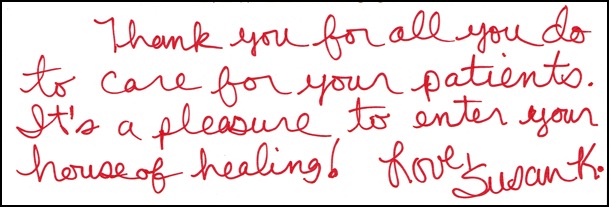 Thank you for all you do
to care for your patients.
It's a pleasure to enter your
house of healing! Love, Susan K.